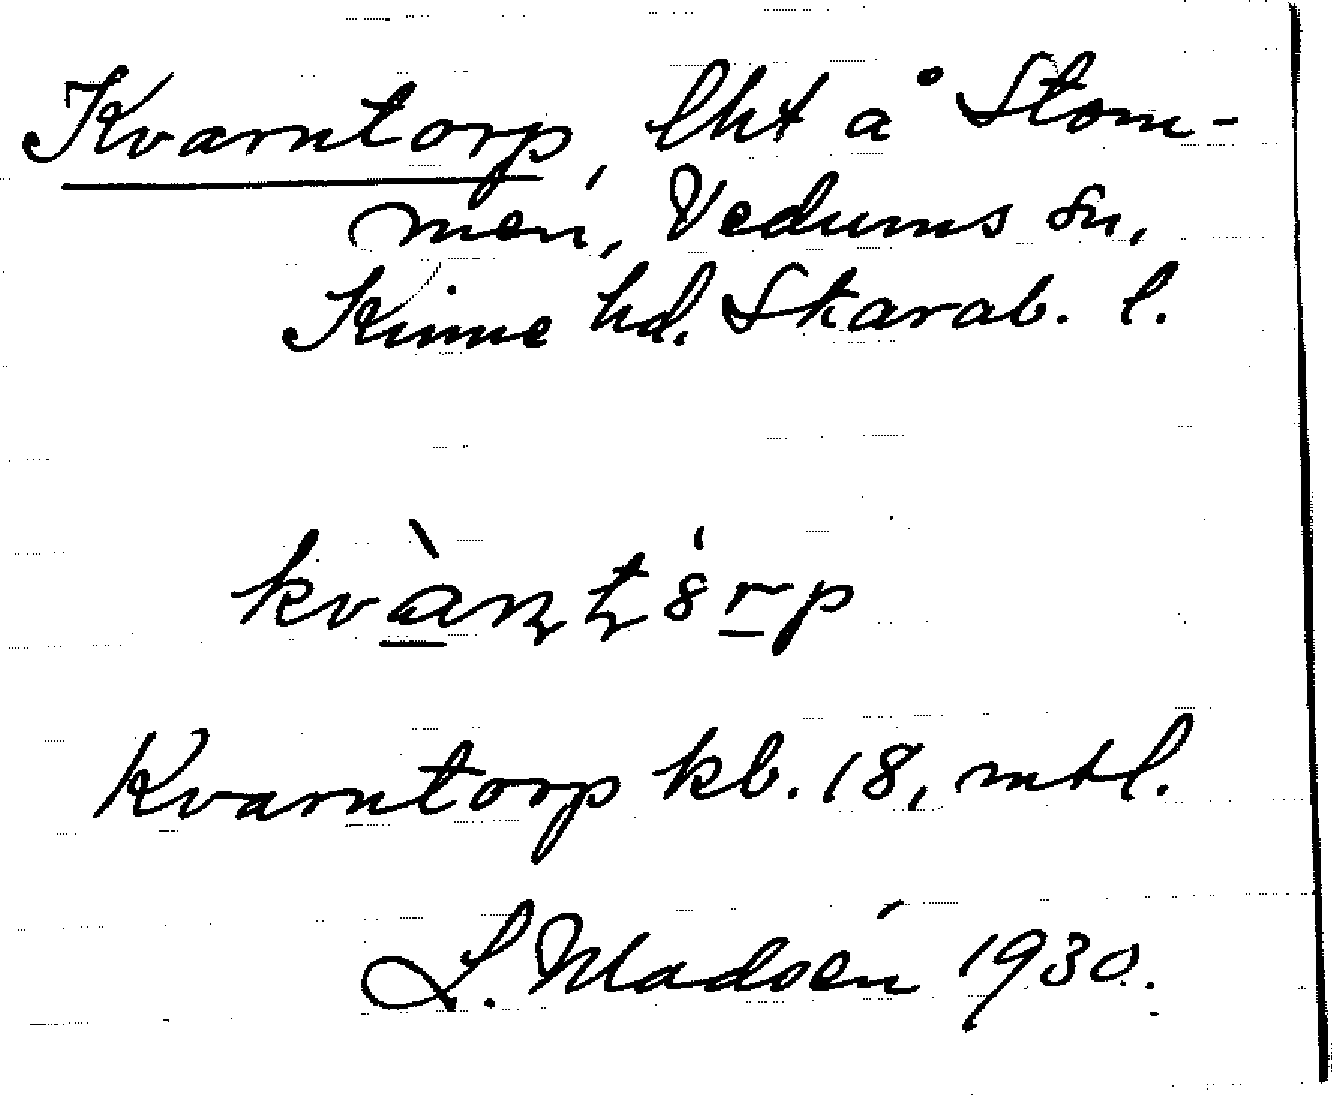 Kvarntorp, lht å Stom-
men, Vedums sn,
Kinne hd. Skarab. l.
kvàɳʈ8rp
Kvarntorp kb. 18, mtl.
L. Madsén 1930.